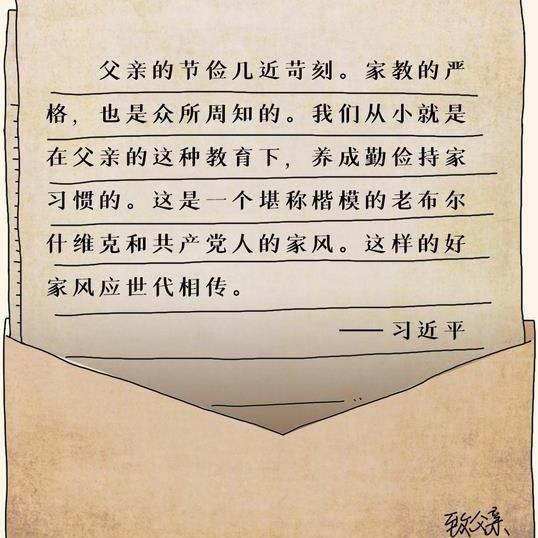 父亲的节俭几近苛刻。家教的严
格，也是众所周知的。我们从小就是
在父亲的这种教育下，养成勤俭持家
习惯的。这是一个堪称楷模的老布尔
什维克和共产党人的家风。这样的好
家风应世代相传。
——习近平
致父亲